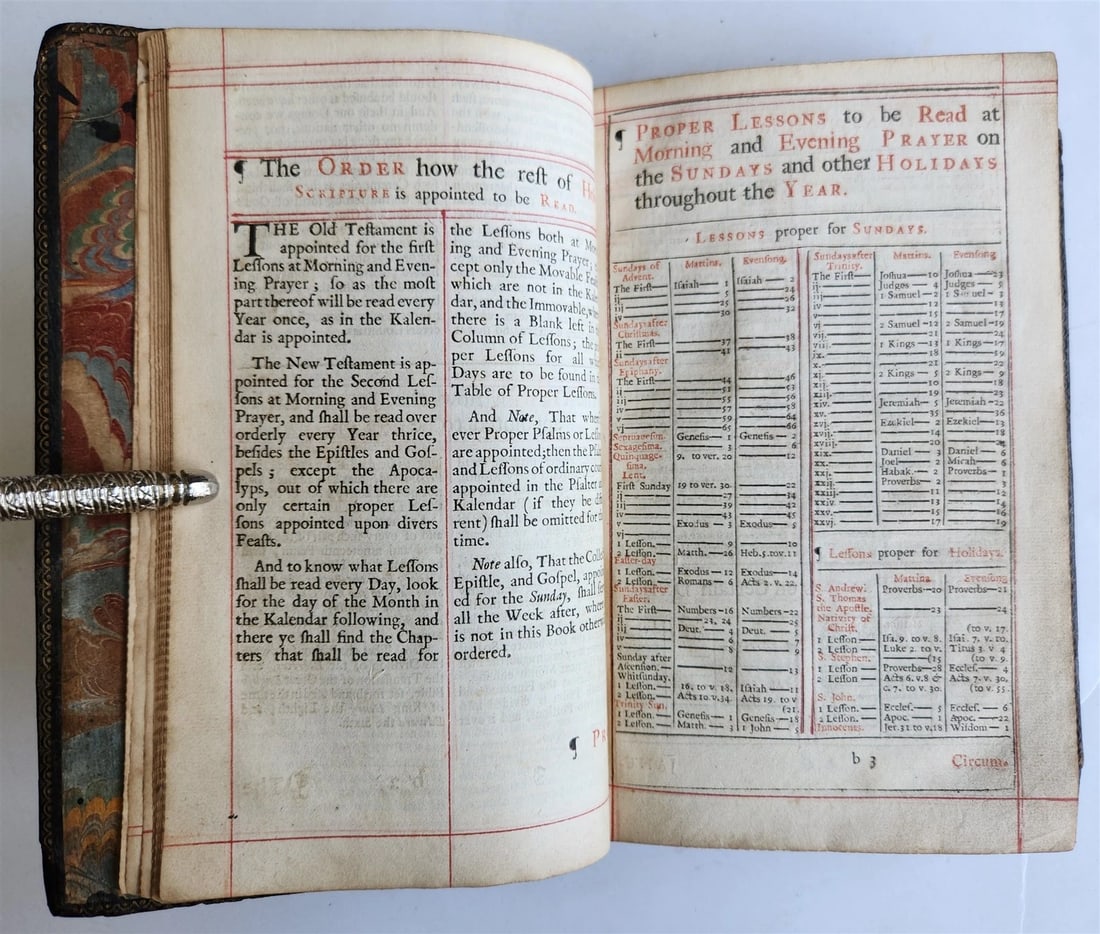 ¶ The ORDER how the reſt of
SCRIPTURE is appointed to be READ.
THE Old Teſtament is
appointed for the firſt
Leſſons at Morning and Even-
ing Prayer ; ſo as the moſt
part thereof will be read every
Year once, as in the Kalen-
dar is appointed.
The New Teſtament is ap-
pointed for the Second Leſ-
ſons at Morning and Evening
Prayer, and ſhall be read over
orderly every Year thrice,
beſides the Epiſtles and Goſ-
pels ; except the Apoca-
lyps, out of which there are
only certain proper Leſ-
ſons appointed upon divers
Feaſts.
And to know what Leſſons
ſhall be read every Day, look
for the day of the Month in
the Kalendar following, and
there ye ſhall find the Chap-
ters that ſhall be read for
the Leſſons both at
ing and Evening Prayer;
cept only the Movable
which are not in the
dar, and the Immovable,
there is a Blank left in
Column of Leſſons;
per Leſſons for all
Days are to be found in
Table of Proper Leſſons.
And Note, That
ever Proper Pſalms or
are appointed;then the
and Leſſons of ordinary
appointed in the Pſalter
Kalendar ( if they be
rent) ſhall be omitted for
time.
Note alſo, That the
Epiſtle, and Goſpel,
ed for the Sunday, ſhall
all the Week after,
is not in this Book
ordered.
¶ PR
¶ PROPER LESSONS to be Read at
Morning and Evening PRAYER on
the SUNDAYS and other HOLIDAYS
throughout the YEAR.
LESSONS proper for SUNDAYS.
Sundays of Advent. Mattins. Evenſong.
The Firſt— Iſaiah — 1 Iſaiah — 2
ij 5 24
iij 25 26
iv 30 32
Sundays after
Chriſtmas.
The Firſt— 37 38
ii 41 43
Sundays after
Epiphany.
The Firſt— 44 46
ij 51 53
iij 55 56
iv 57 58
v 59 64
vj 65 66
Septuageſim. Geneſis — 1 Geneſis — 2
Sexageſima. 3 6
Quinquage-
ſima. 9. to ver. 20 12
Lent.
Firſt Sunday 19 to ver. 30. 22
ij 27 34
iij 39 42
iv 43 45
v Exodus — 3 Exodus — 5
vj
1 Leſſon. 9 10
2 Leſſon.— Matth. —26 Heb.5.to v.11
Eaſter-day
1 Leſſon. Exodus —12 Exodus—14
2 Leſſon. Romans — 6 Acts 2. v. 22.
Sundays after
Eaſter.
The Firſt— Numbers —16 Numbers —22
ij 23, 24 25
iij Deut. — 4 Deut. — 5
iv 6 7
v 8 9
Sunday after
Aſcenſion.— 12 13
Whitſunday.
1 Leſſon. 16. to v. 18. Iſaiah —11
2 Leſſon. Acts 10.v.34. Acts 19. to v
Trinity Sun. (21.
1 Leſſon. Geneſis — 1 Geneſis —18
2 Leſſon. Matth. — 3 1 John — 5
Sundays after
Trinity. Mattins. Evenſong.
The Firſt— Joſhua —10 Joſhua —23
ij Judges — 4 Judges — 5
iij 1 Samuel — 2 1 Samuel — 3
iv 12 13
v 15 17
vj 2 Samuel —12 2 Samuel —19
vij 21 24
viij 1 Kings —13 1 Kings —17
ix. 18 19
x. 21 22
xj. 2 Kings — 5 2 Kings — 9
xij. 10 18
xiij. 19 23
xiv. Jeremiah — 5 Jeremiah —22
xv. 35 36
xvj. Ezekiel — 2 Ezekiel —13
xvij. 14 18
xviij. 20 24
xix. Daniel — 3 Daniel — 6
xx. Joel — 2 Micah — 6
xxj. Habak. — 2 Proverbs — 1
xxij. Proverbs — 2 3
xxiij. 11 12
xxiv. 13 14
xxv. 15 16
xxvj. 17 19
¶ Leſſons proper for Holidays.
Mattins Evenſong
S. Andrew. Proverbs—20 Proverbs—21
S. Thomas
the Apoſtle. 23 24
Nativity of
Chriſt. (to v. 17.
1 Leſſon — Iſa. 9. to v. 8. Iſai. 7. v. 10.
2 Leſſon Luke 2. to v. Titus 3. v 4
S. Stephen. (15 (to v. 9.
1 Leſſon — Proverbs—28 Eccleſ. — 4
2 Leſſon Acts 6. v.8 & Acts 7. v. 30.
c. 7. to v. 30. (to v. 55.
S. John.
1 Leſſon. Eccleſ. — 5 Eccleſ. — 6
2 Leſſon. Apoc. — 1 Apoc. —22
Innocents. Jer.31 to v.18 Wiſdom — 1
b 3 Circum-